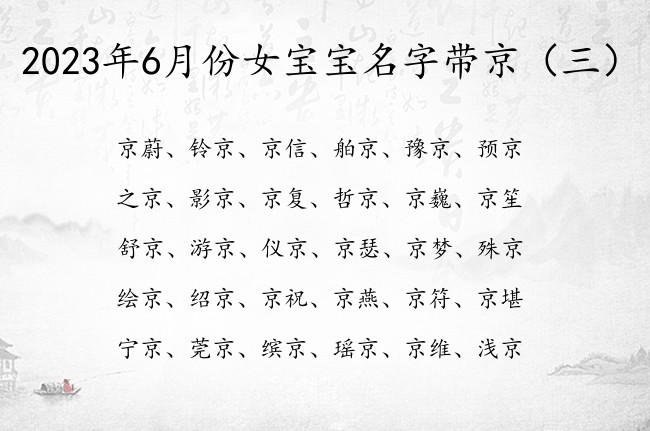 2023年6月份女宝宝名字带京（三）
京蔚、铃京、京信、舶京、豫京、预京
之京、影京、京复、哲京、京巍、京笙
舒京、游京、仪京、京瑟、京梦、殊京
绘京、绍京、京祝、京燕、京符、京堪
宁京、莞京、缤京、瑶京、京维、浅京